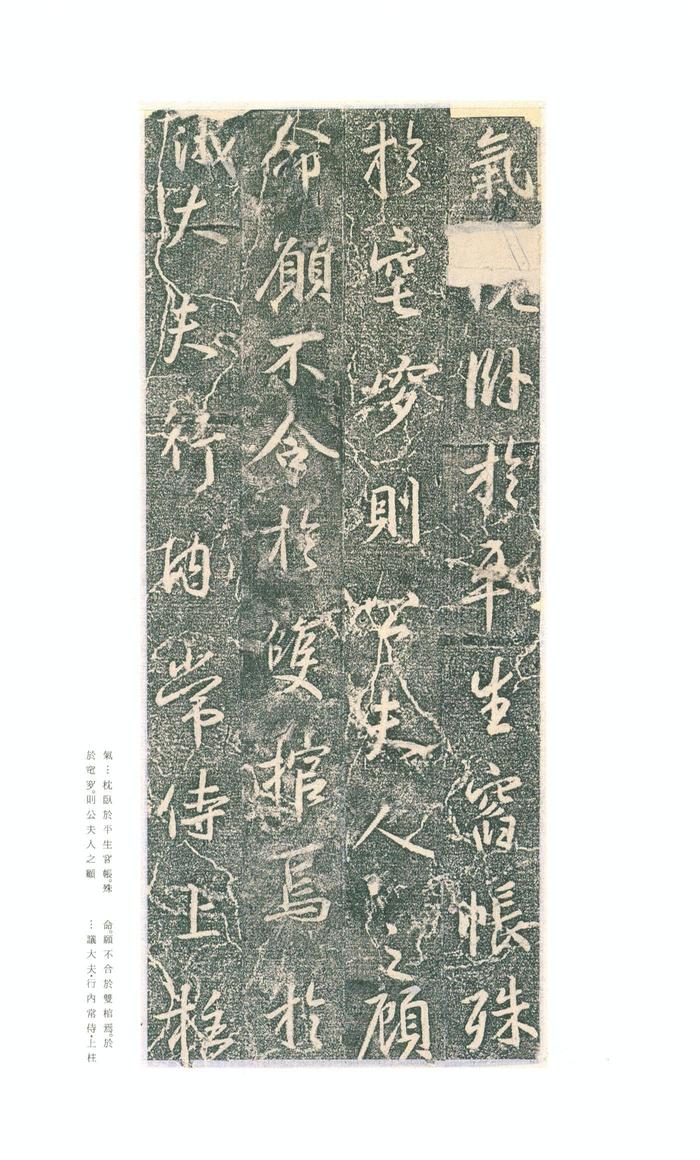 氣枕臥於平生宵帳殊
於窀穸則公夫人之顧
命願不合於雙棺焉於
議大夫行內常侍上柱
氣…枕臥於平生宵帳。殊
於窀穸。則公夫人之顧
命。願不合於雙棺焉。於
…議大夫・行內常侍・上柱